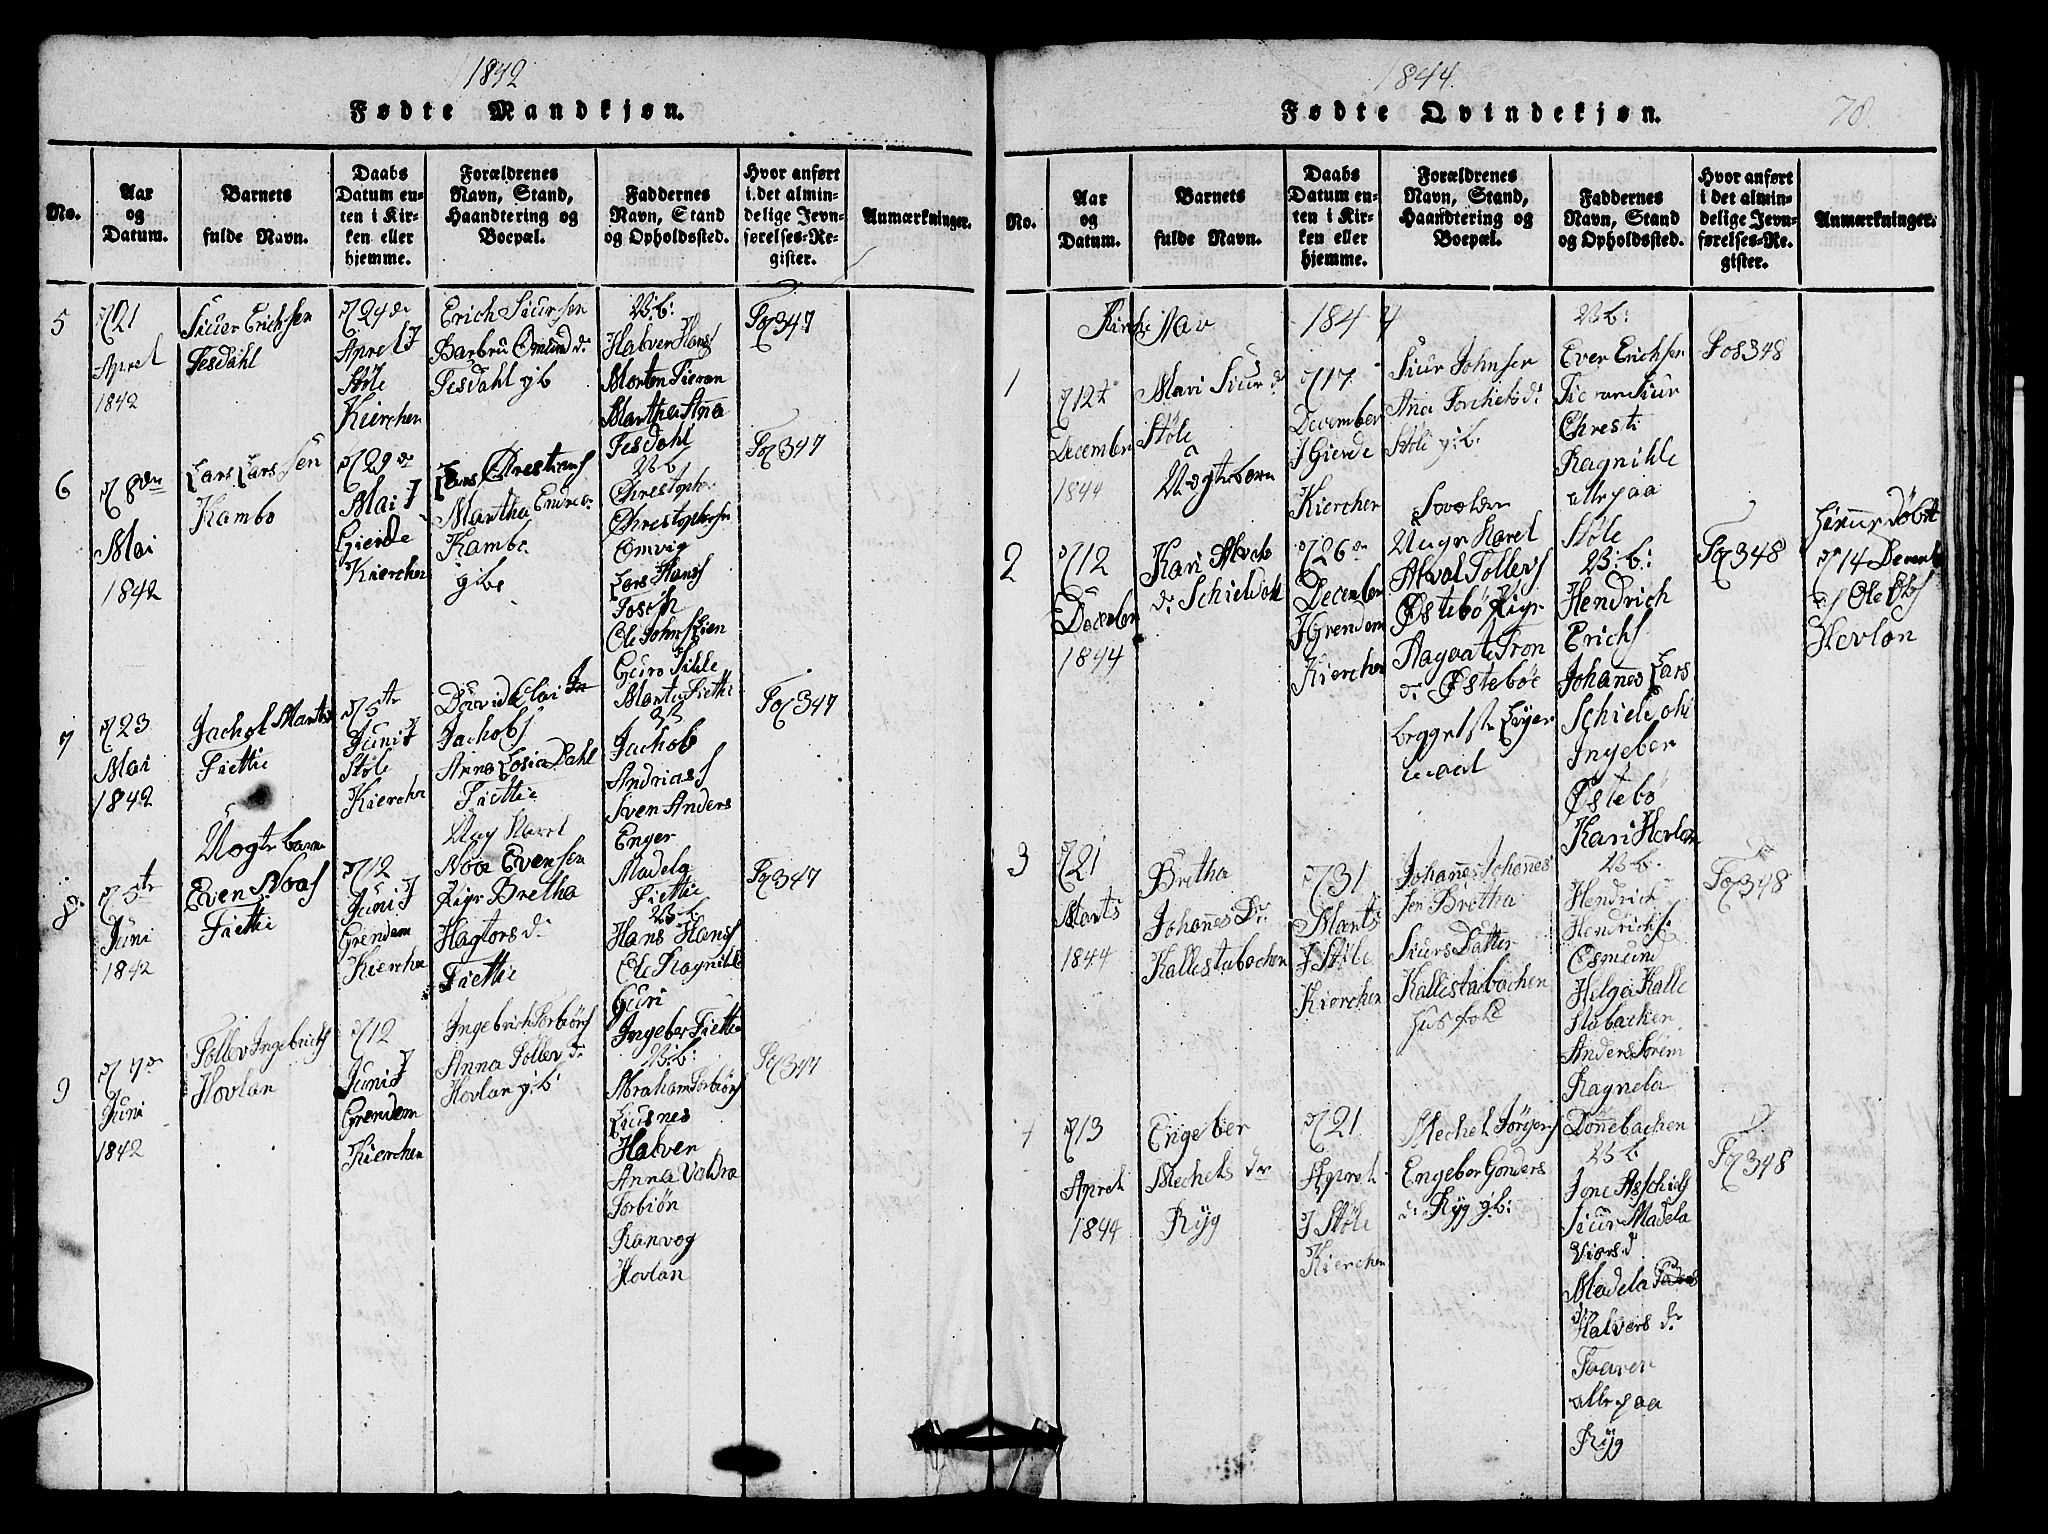 1842
Fødte Mandkjøn.
No.
Aar
og
Datum.
Barnets
fulde Navn.
Daabs
Datum en-
ten i Kir-
ken eller
hjemme.
Forældrenes
Navn, Stand,
Haandtering og
Boepæl.
Faddernes
Navn, Stand
og Opholdssted.
Hvor anført
i det almin-
delige Jevn-
førelses-Re-
gister.
Anmærkninger.
5
21
Aprel
1842
Siuer Erichsen
Tesdahl
24de
Aprel I
Støle
Kierchen
Erich Siursen
Barbru Omund d:
Tesdahl g b
V:b:
Halver Hans
Morten Sieran
Martha Ana
Tesdahl
Fog 347
6
8de
Mai
1842
Lars Lars Sen
Kambo
29de
Mai I
Gierde
Kiercher
Lars Chrestians
Martha Endre d:
Kambo
g:be
V:b
Chrestopher
Chrestophersen
Omvig
Lars Hans
Josest
Ole Johns Lien
Guro Sille
Martha Fiettie
Fog 347
7
23
Mai
1842
Jachob Martin
Fiettie
5te
Juni I
Støle
Kierche
David Clai
Jachobs
Anna Losia Dahl
Fiettie
V b
Jachob
Andrias
Sven Anders
Enger
Madela
Fiettie
Fog 347
8.
5te
Juni
1842
Uegte barn
Even Noas
Fiettie
12
Juni I
Grendem
Kierche
Ung Karel
Noa Evensen
Pige Bretha
Hagtors d:
Fiettie
V:b
Hans Hans
Ole Ragnilde
Guri
Ingeber Fiettie
Fog 347
9
7de
Juni
1842
Tollev Ingebricts
Hovlan
12
Juni I
Grendem
Kierchen
Ingebrich Torbiørs
Anna Tollev d:
Hovlan g:b:
V:b:
Abraham Torbiørs
Liusnes
Halven
Anna Valdra
Torbiøn
Ranvog
Hovlan
Fog 347
1844.
Fødte Qvindekjøn.
78.
No.
Aar
og
Datum.
Barnets
fulde Navn.
Daabs
Datum en-
ten i Kir-
ken eller
hjemme.
Forældrenes
Navn, Stand,
Haandtering og
Boepæl.
Faddernes
Navn, Stand
og Opholdssted.
Hvor anført
i det almin-
delige Jevn-
førelses-Re-
gister.
Anmærkninger.
Kirche Aar 1844
1
12te
December
1844
Mari Siur d:
Støle
17
December
I Gierde
Kierchen
Siur Johnsen
Ana Torchels d:
Støle g:b:
V:b:
Ever Erichsen
Sieran Siur
Chresti
Ragnihle
alle paa
Støle
Fog 348
2
12
December
1844
Uegteborn
Kari Akvals
d: Schieldale
26de
December
I Grendem
Kierchen
Ungr Karel
Akval Tollevs
Østebø Pigr
Ragvate Tron
d: Østebøe
V:b:
Hendrich
Erichs
Johanes Lars
Schieldal
Ingeber
Østebø
Kari Hovlan
Fog 348
14 December
af Ole Ols
Hovlan
3
21
Marts
1844
Bretha
Johanes Dr:
Kallestabachen
31
Marts
I Støle
Kierchen
Johanes Johanes
sen Bretha
Siurs Datter
Kallestabachen
Husfolk
V:b:
Hendrich
Hendrichs.
Osmund
Helgei Kalle
stabachen
Anders Sørem
Ragnela
Donebachen
Fog 348
4
13
Aprel
1844
Engeber
Mechels dr
Ryg
21
Aprel
I Støle
Kierchen
Mechel Jørgens
Engeber Gonders
d: Ryg g:b:
V b:
Jone Asschiels
Siur Madela
Viors d
Madela
Halvers dr
Taaren
alle paa
Ryg
Fog 348